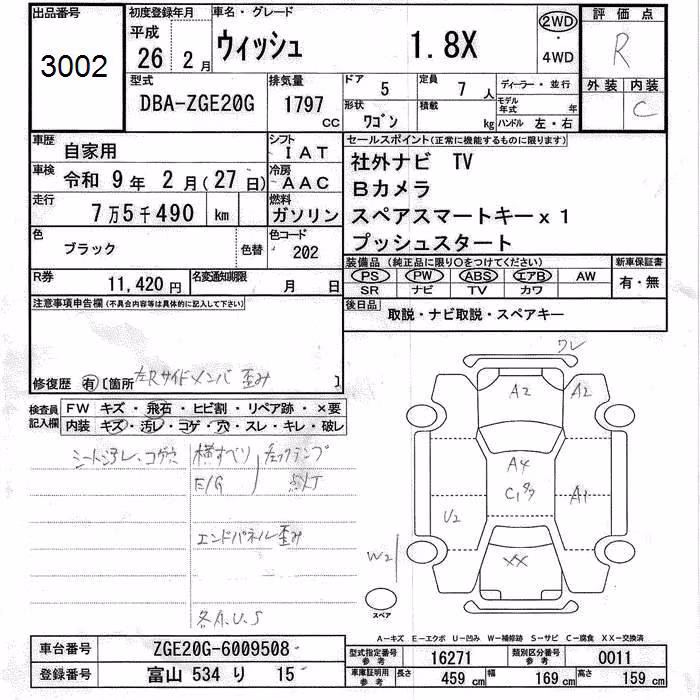 出品番号 3002
初度登録年月 平成 26年 2月
車名・グレード ウィッシュ 1.8X
2WD・4WD
評価点 R
外装 内装 C
型式 DBA-ZGE20G
排気量 1797 CC
ドア 5
定員 7人
形状 ワゴン
積載 kg
ディーラー・並行
モデル年式 年
ハンドル 左・右
車歴 自家用
シフト IAT
車検 令和 9年 2月(27日)
冷房 AAC
走行 7万5千490 km
燃料 ガソリン
色 ブラック 色替
色コード 202
R券 11,420円
名変通知期限 月 日
セールスポイント(正常に機能するものに限ります)
社外ナビ TV
Bカメラ
スペアスマートキーx1
プッシュスタート
装備品(純正品に限り○をつけてください)
PS PW ABS エアB AW
SR ナビ TV カワ
新車保証書 有・無
後日品 取説・ナビ取説・スペアキー
注意事項申告欄(不具合内容等は具体的に記入して下さい)
修復歴 有 〔箇所 左Rサイドメンバ 歪み 〕
検査員記入欄
FW キズ・飛石・ヒビ割・リペア跡・×要
内装 キズ・汚レ・コゲ・穴・スレ・キレ・破レ
シート汚レ・コゲ穴
横すべり
E/G
チェックランプ
点灯
エンドパネル歪み
各A.U.S
ワレ
A2
A2
A4
A1
U2
W2
XX
スペア
A-キズ E-エクボ U-凹み W-補修跡 S-サビ C-腐食 XX-交換済
車台番号 ZGE20G-6009508
登録番号 富山 534 り 15
型式指定番号 参考 16271
類別区分番号 参考 0011
車庫証明用 参考 長さ 459 cm 幅 169 cm 高さ 159 cm